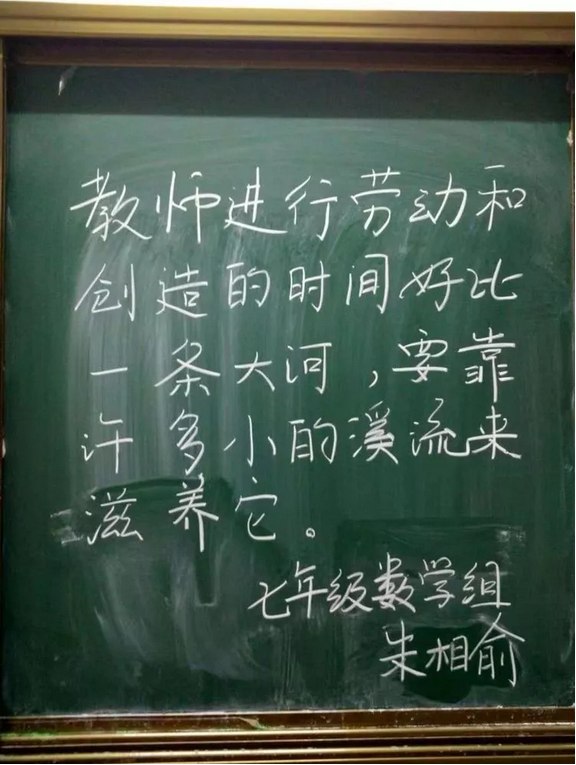 教师进行劳动和
创造的时间好比
一条大河，要靠
许多小的溪流来
滋养它。
七年级数学组
朱相俞